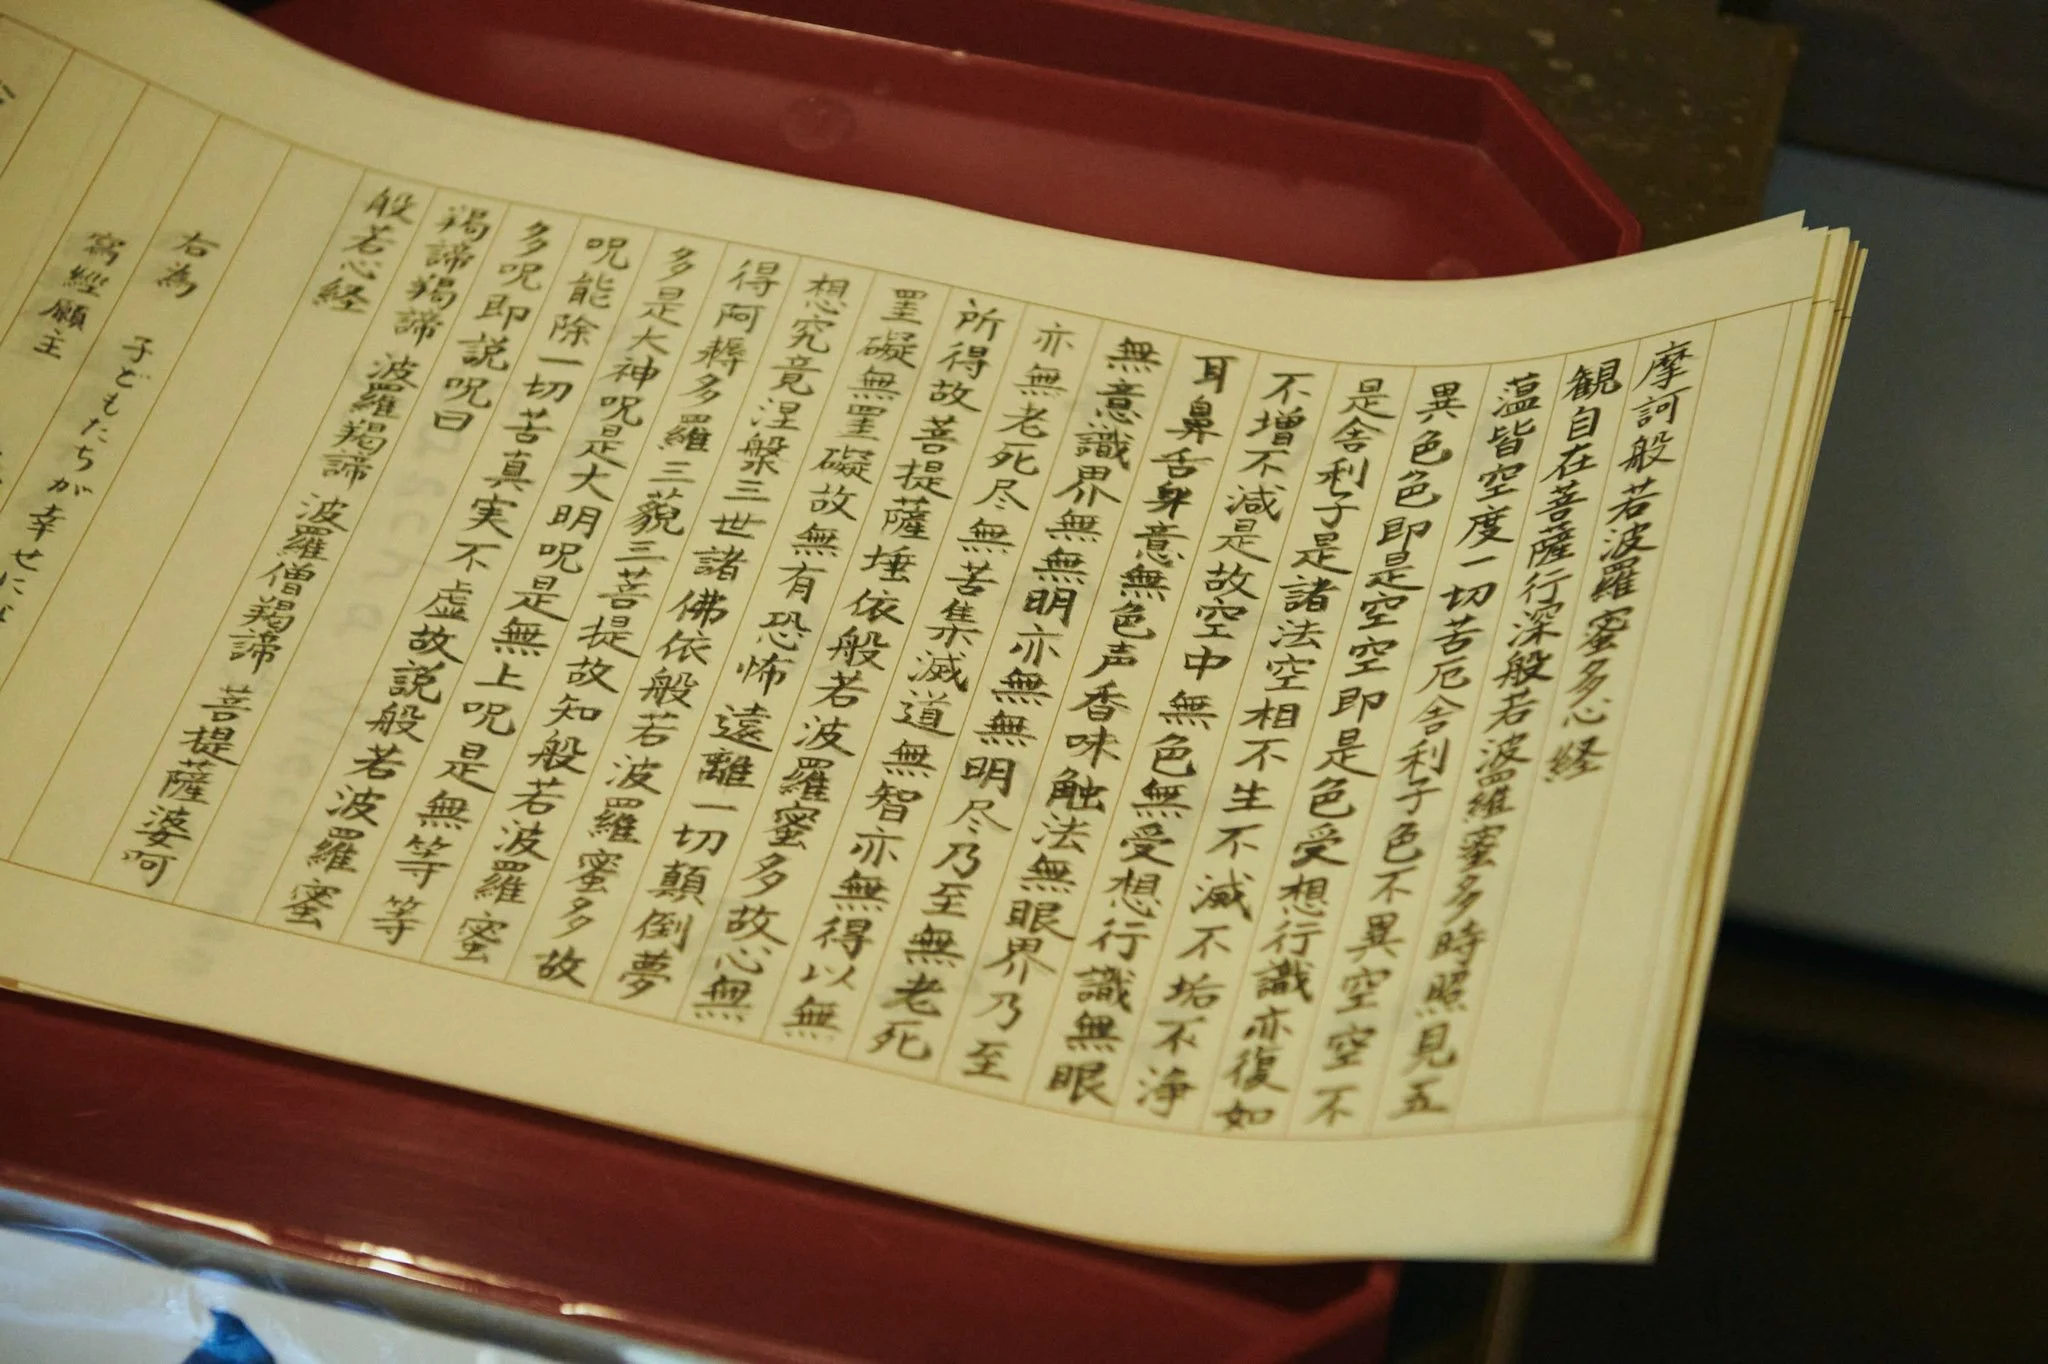 摩訶般若波羅蜜多心経
観自在菩薩行深般若波羅蜜多時照見五
蘊皆空度一切苦厄舎利子色不異空空不
異色色即是空空即是色受想行識亦復如
是舎利子是諸法空相不生不滅不垢不浄
不増不減是故空中無色無受想行識無眼
耳鼻舌身意無色声香味触法無眼界乃至
無意識界無無明亦無無明尽乃至無老死
亦無老死尽無苦集滅道無智亦無得以無
所得故菩提薩埵依般若波羅蜜多故心無
罣礙無罣礙故無有恐怖遠離一切顛倒夢
想究竟涅槃三世諸佛依般若波羅蜜多故
得阿耨多羅三藐三菩提故知般若波羅蜜
多是大神呪是大明呪是無上呪是無等等
呪能除一切苦真実不虚故説般若波羅蜜
多呪即説呪曰
羯諦羯諦 波羅羯諦 波羅僧羯諦 菩提薩婆呵
般若心経
右為 子どもたちが幸せにな
寫經願主